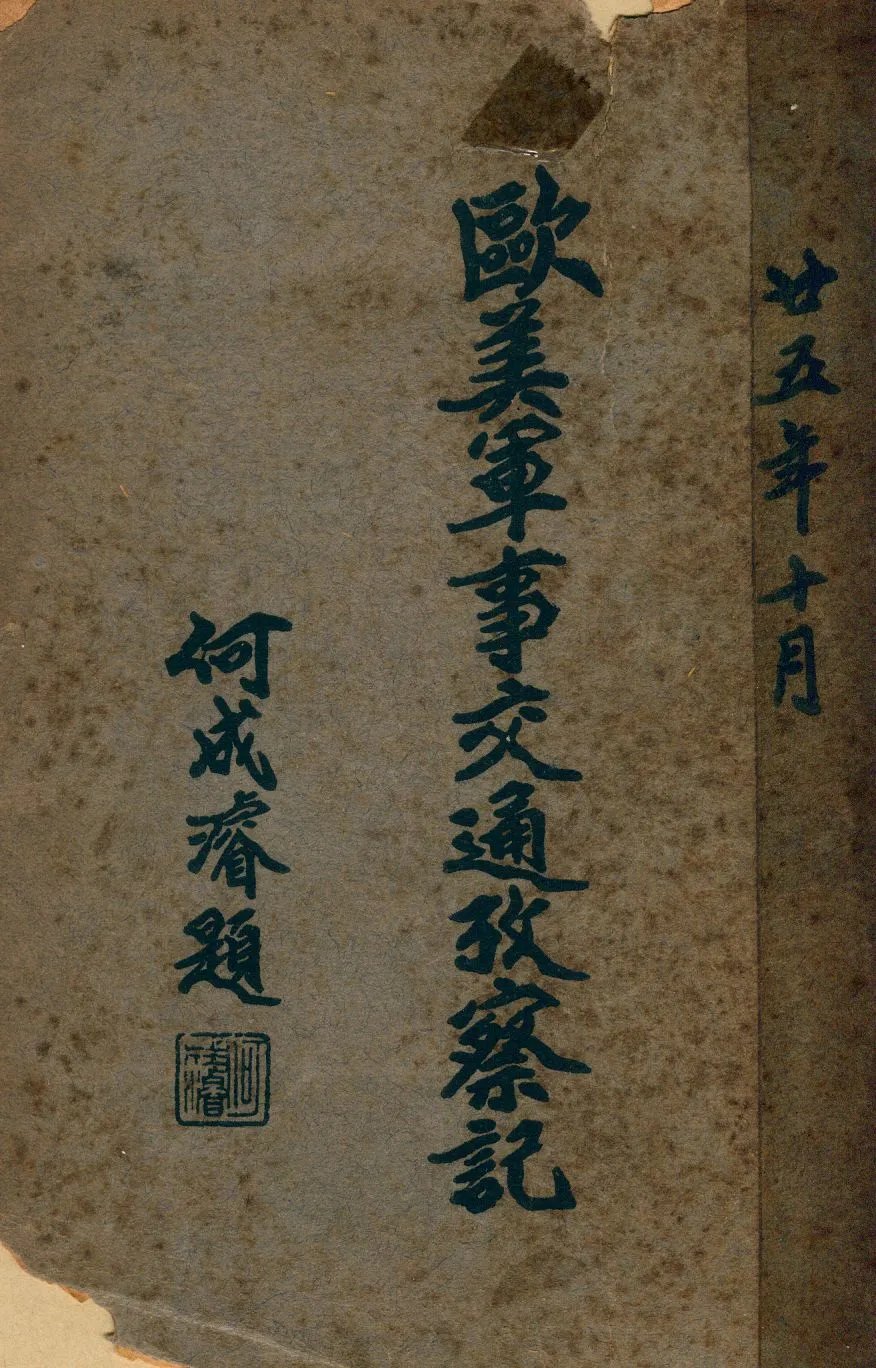 廿五年十月
歐美軍事交通攷察記
何成濬題